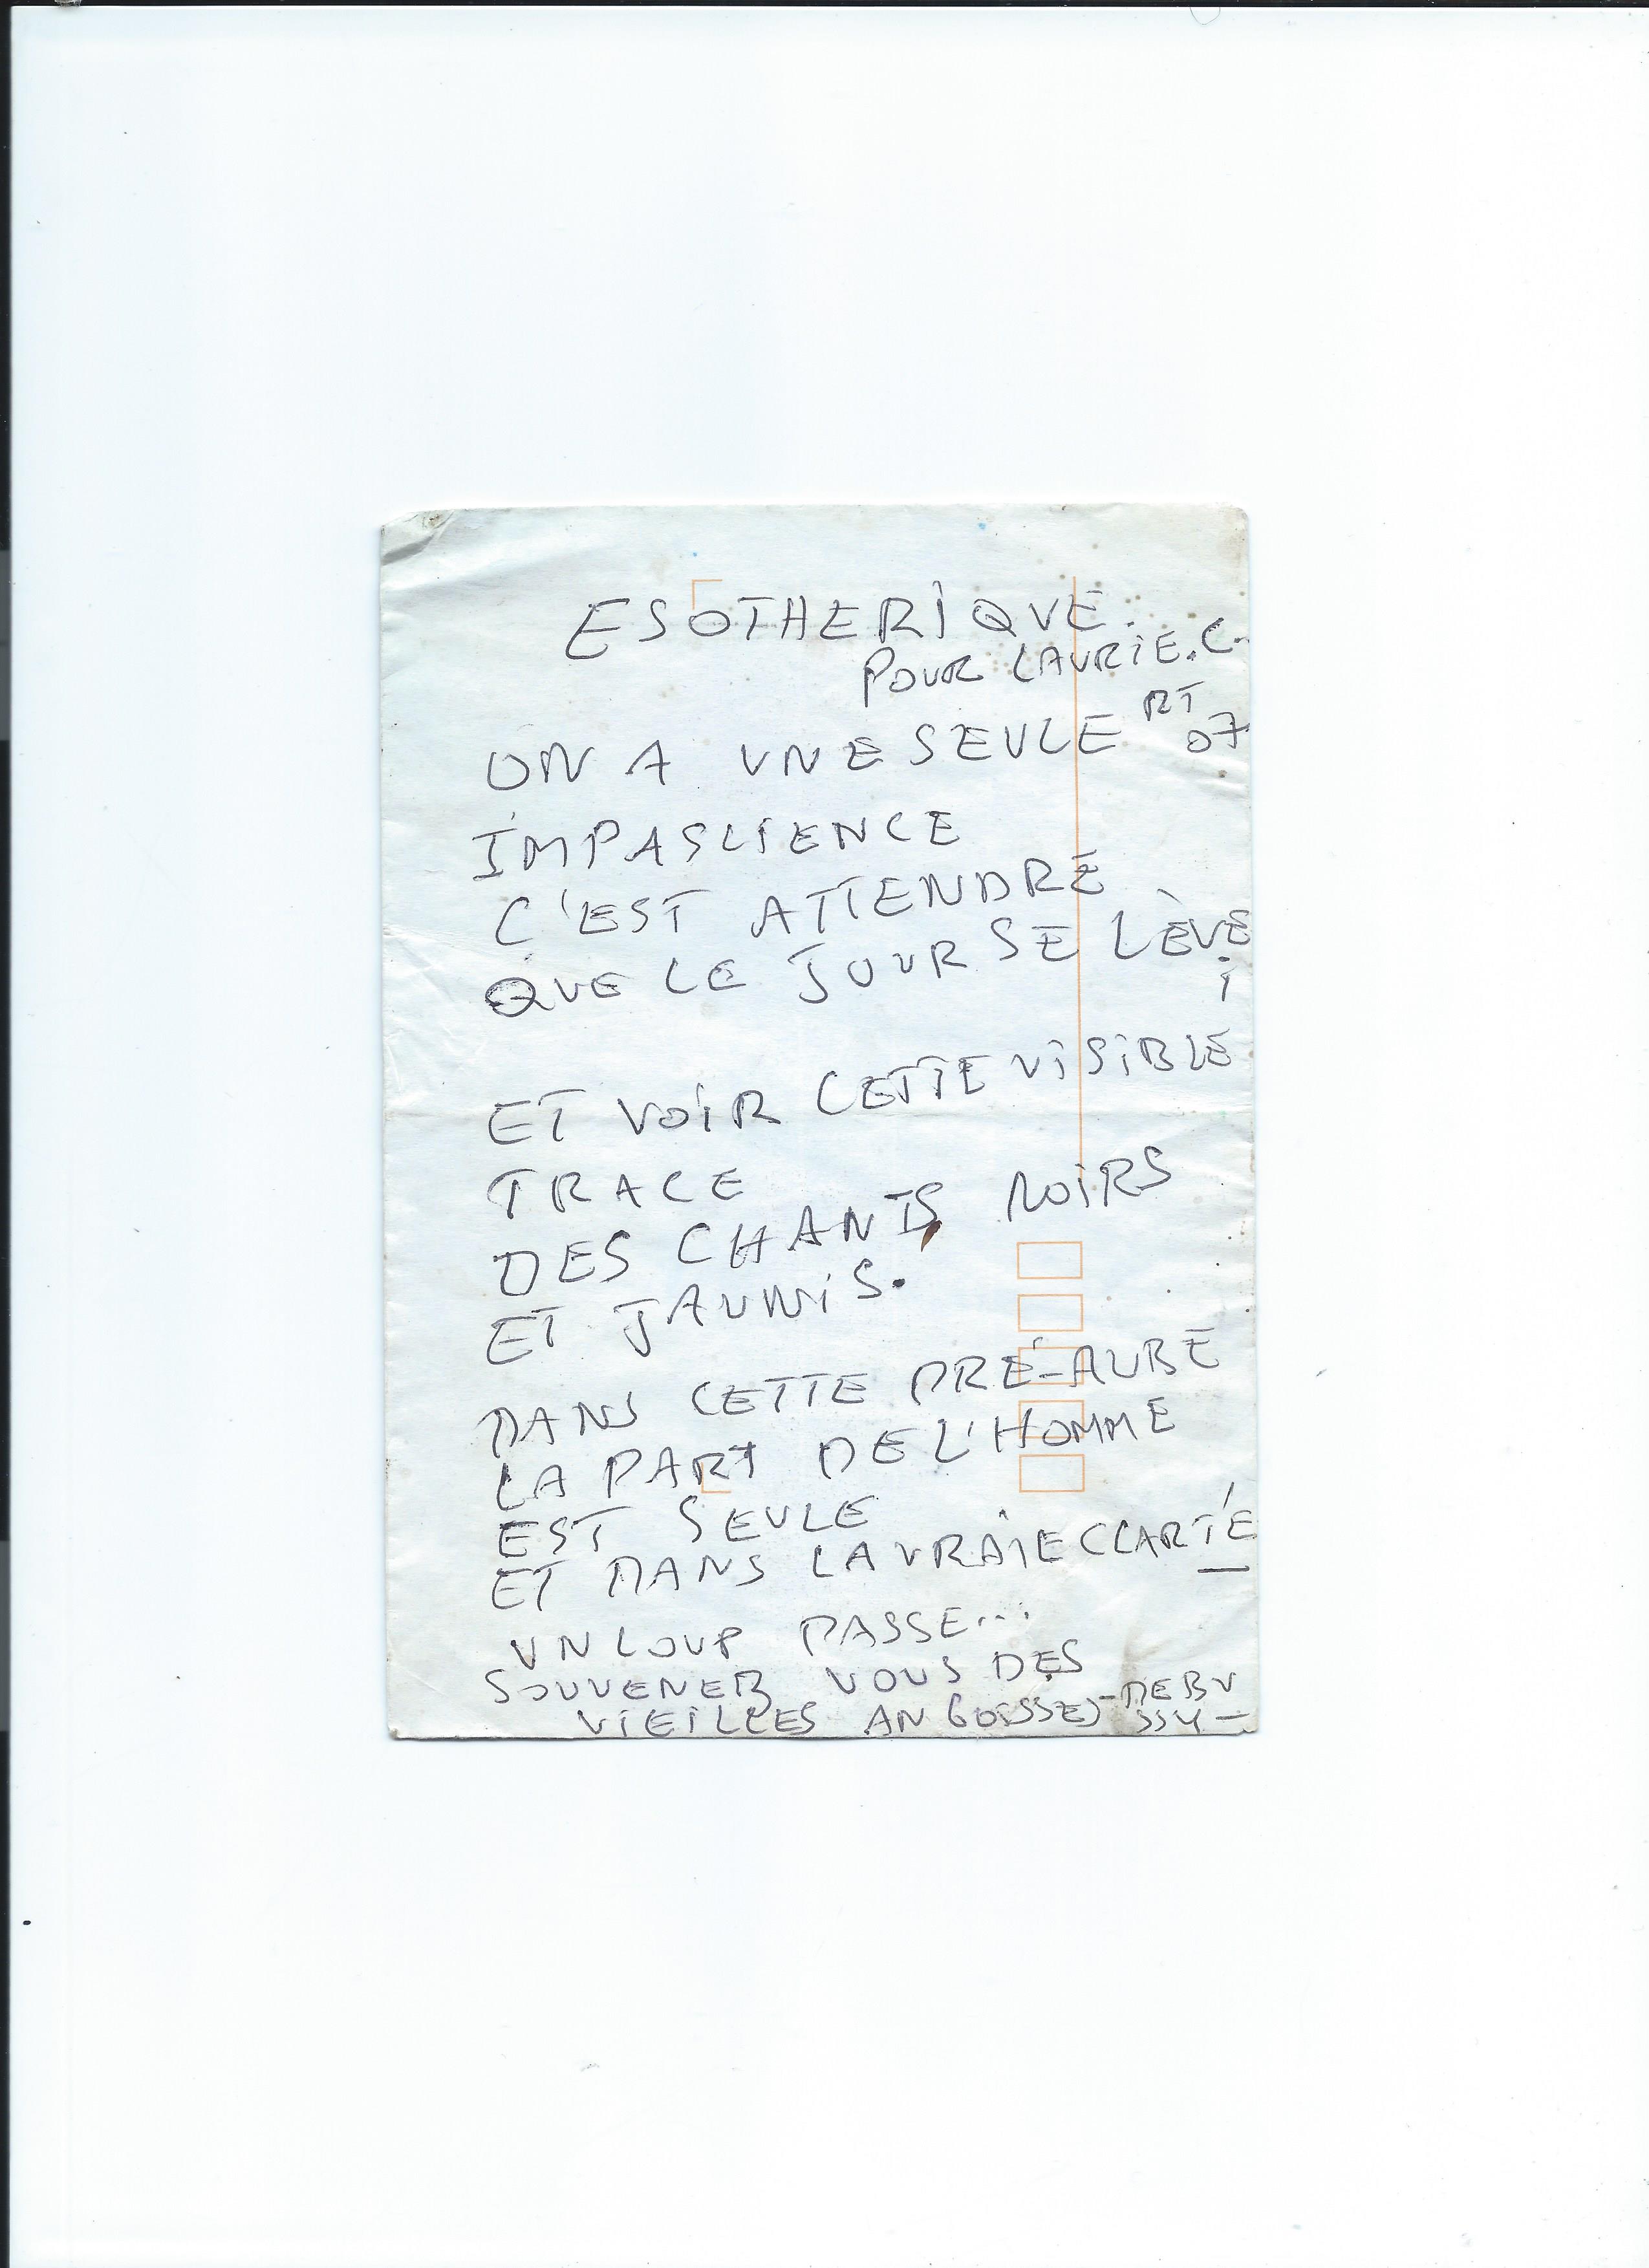 ESOTHERIQUE.
POUR LAURIE.C.
RT
07
ON A UNE SEULE
IMPASCIENCE
C'EST ATTENDRE
QUE LE JOUR SE LÈVE
;
ET VOIR CETTE VISIBLE
TRACE
DES CHANTS NOIRS
ET JAUNIS.
DANS CETTE PRÉ-AUBE
LA PART DE L'HOMME
EST SEULE
ET DANS LA VRAIE CLARTÉ
UN LOUP PASSE...
SOUVENEZ VOUS DES
VIEILLES ANGOISSES -DEBU
SSY-